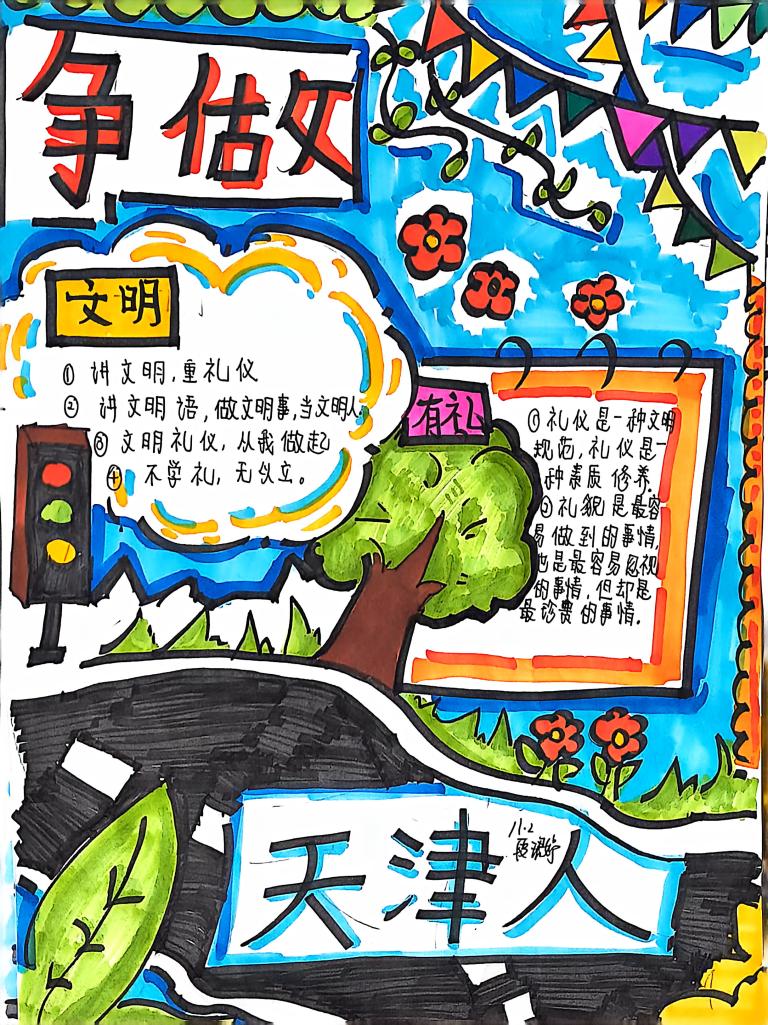 争做
文明
① 讲文明,重礼仪
② 讲文明语,做文明事,当文明人
③ 文明礼仪,从我做起
④ 不学礼,无以立。
有礼
① 礼仪是一种文明
规范,礼仪是一
种素质修养.
② 礼貌是最容
易做到的事情,
也是最容易忽视
的事情,但却是
最珍贵的事情.
天津人
11.2